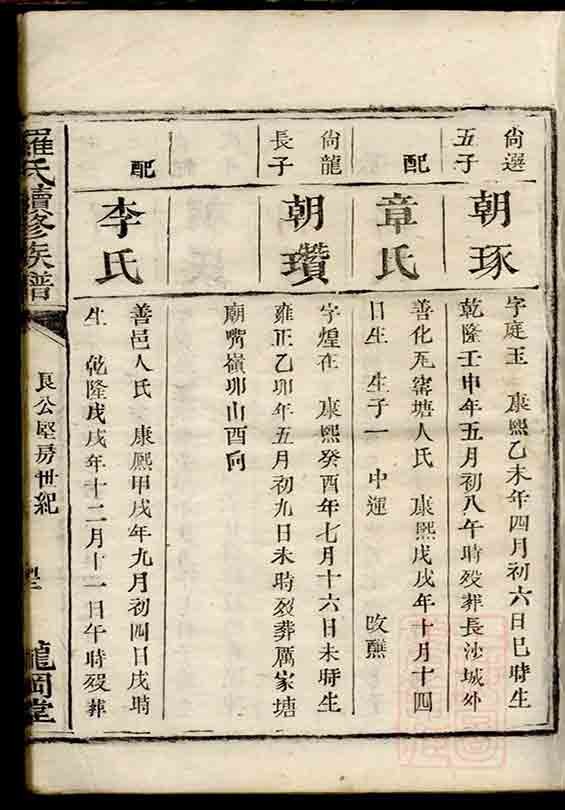 尙選
五子
朝琢
字庭玉 康熙乙未年四月初六日巳時生
乾隆壬申年五月初八午時殁葬長沙城外
配
章氏
善化瓦窰塘人氏 康熙戊戌年十月十四
日生 生子一 中運 改醮
尙龍
長子
朝瓚
字煌在 康熙癸酉年七月十六日未時生
雍正乙卯年五月初九日未時殁葬厲家塘
廟嘴嶺卯山酉向
配
李氏
善邑人氏 康熙甲戌年九月初四日戌時
生 乾隆戊戌年十二月十一日午時殁葬
羅氏續修族譜
良公堅房世紀
龍岡堂